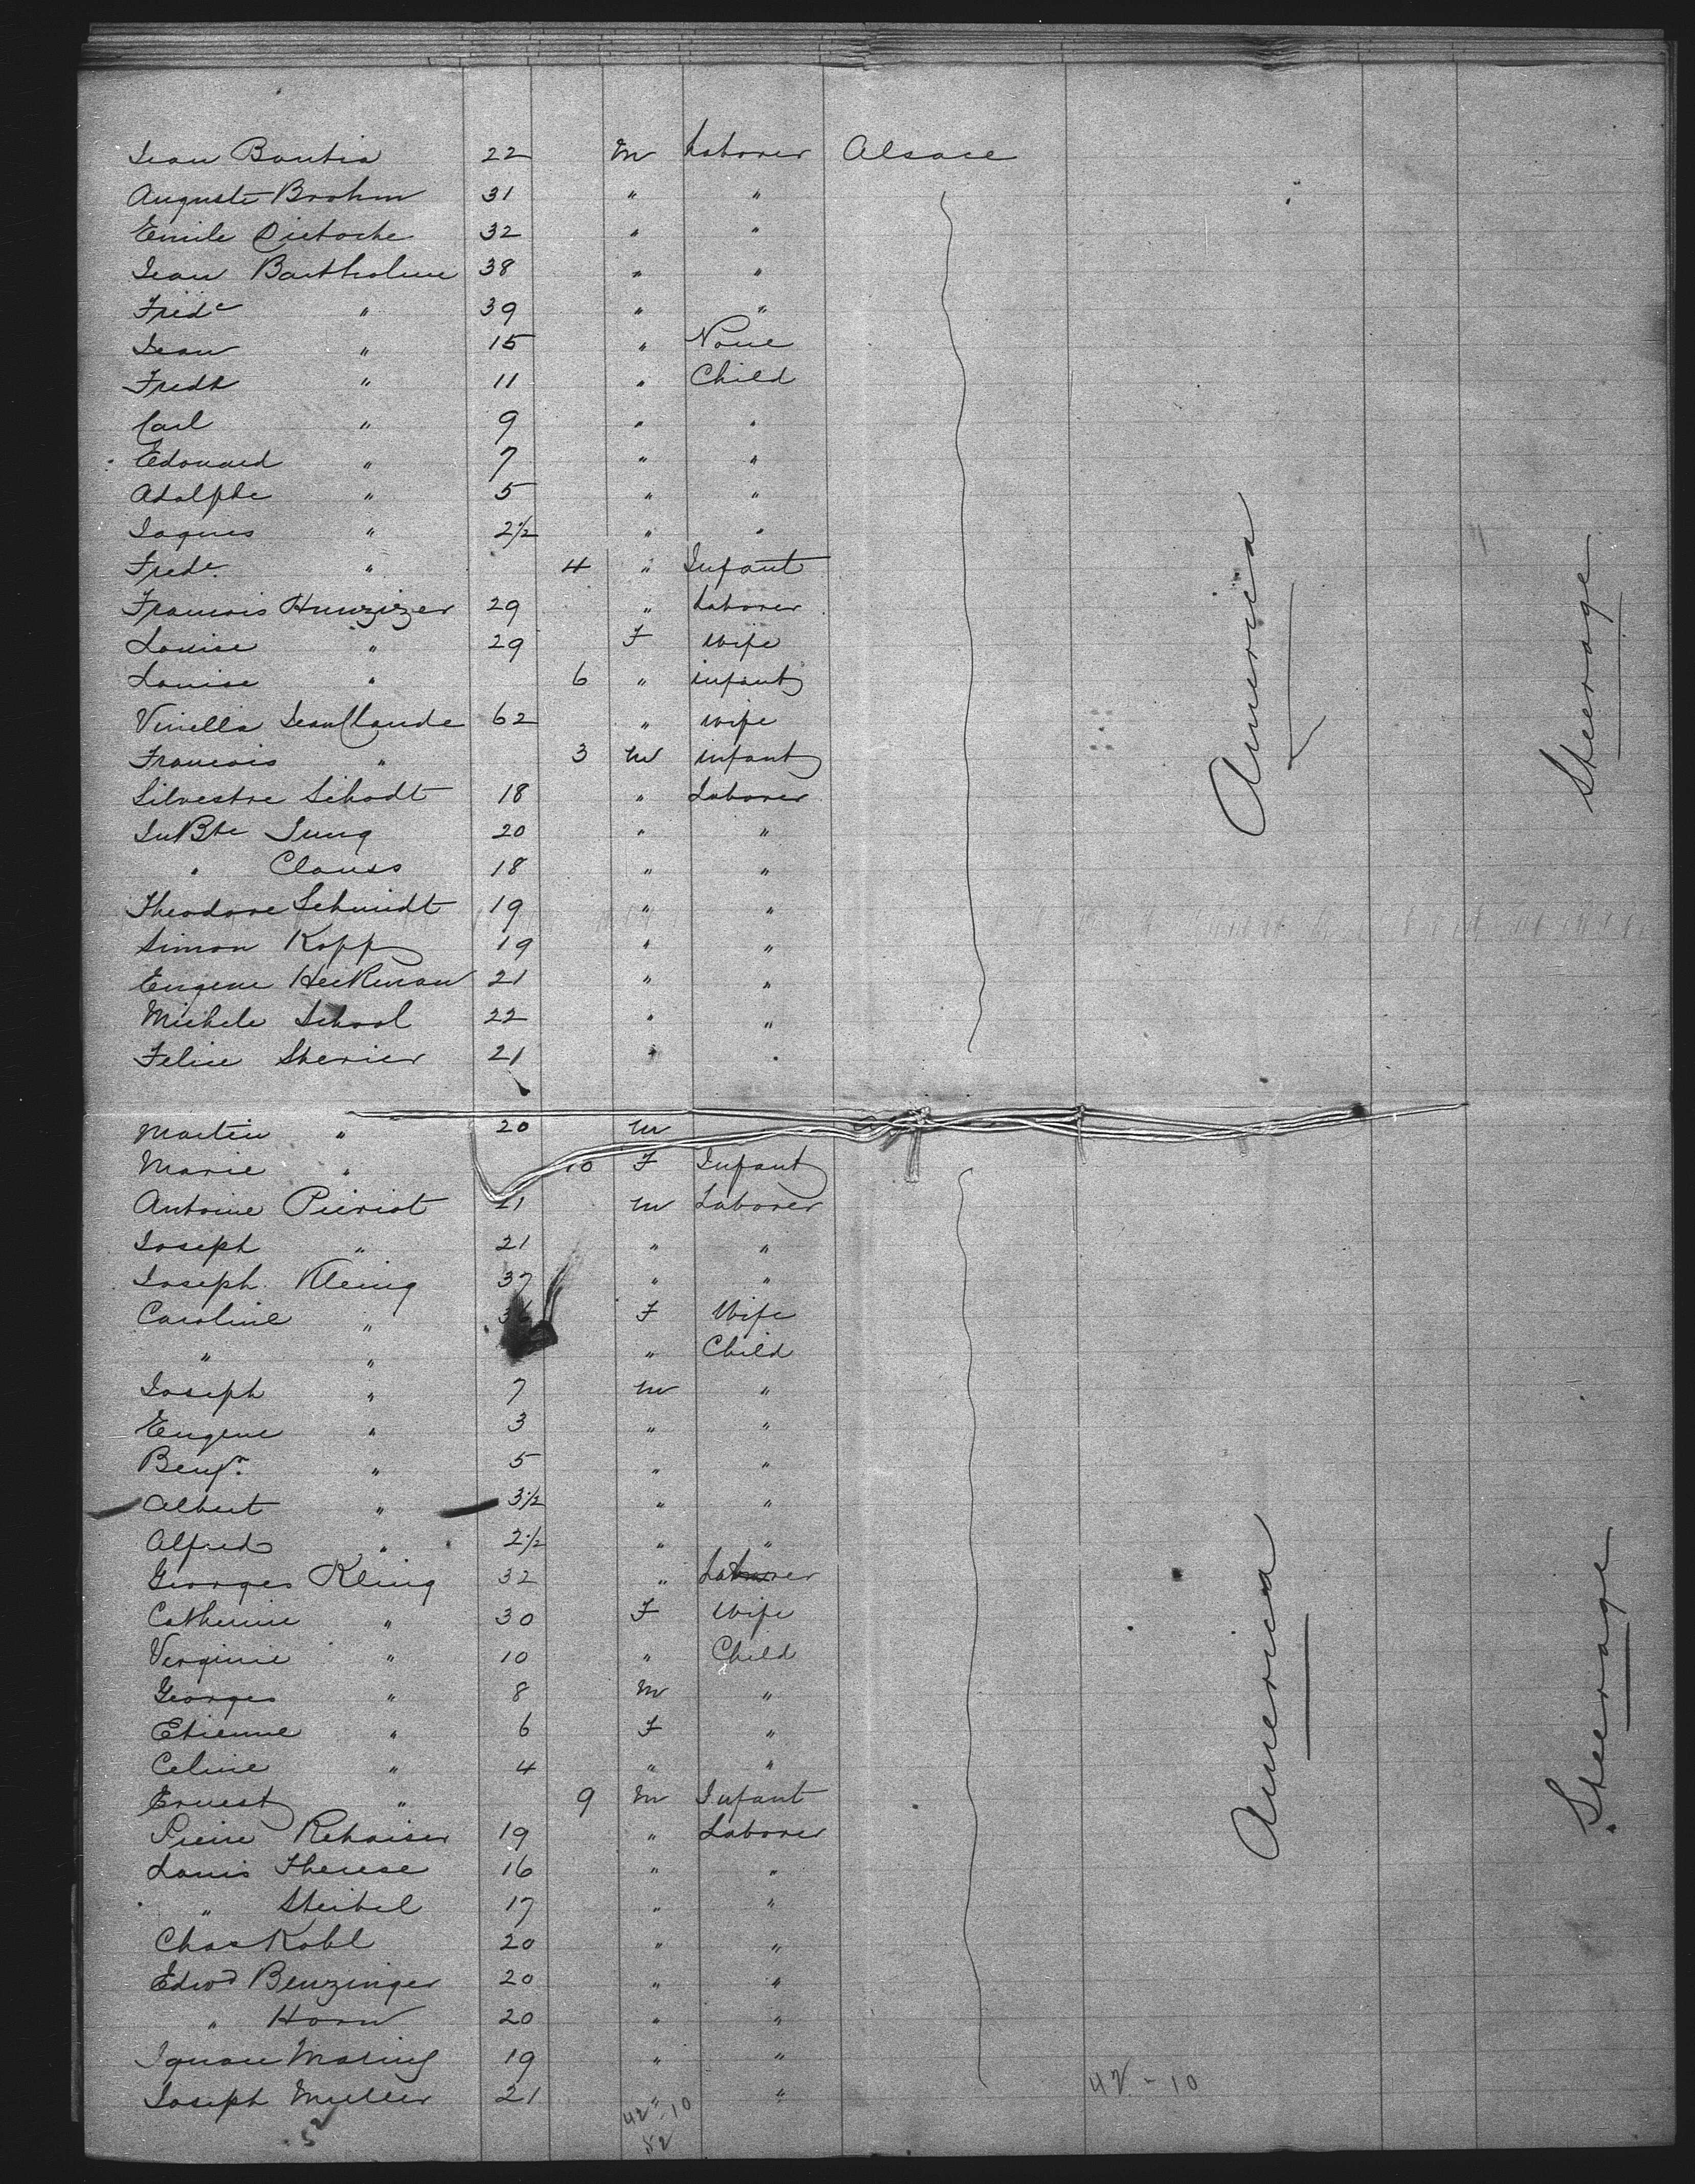 Jean Bontia 22 M Laborer Alsace
Auguste Brohm 31 " "
Emile Dietsche 32 " "
Jean Bartholme 38 " "
Fredc " 39 " "
Jean " 15 " None
Fredk " 11 " Child
Carl " 9 " "
Edouard " 7 " "
Adolphe " 5 " "
Jaques " 2 1/2 " "
Fredc " 4 " Infant
Francois Hunziger 29 " Laborer
Louise " 29 F Wife
Louise " 6 " infant
Virella Jean Claude 62 " wife
Francois " 3 M infant
Silvestre Schodt 18 " Laborer
Jn Bte Jung 20 " "
" Clauss 18 " "
Theodore Schmidt 19 " "
Simon Kopp 19 " "
Eugene Heckman 21 " "
Michele School 22 " "
Felix Sterier 21 " "
America
Steerage
Martin " 20 M
Marie " 10 F Infant
Antoine Pieriot 21 M Laborer
Joseph " 21 " "
Joseph Kleing 37 " "
Caroline " F Wife
" " " Child
Joseph " 7 M "
Eugene " 3 " "
Benj. " 5 " "
Albert " 3 1/2 " "
Alfred " 2 1/2 " "
Georges Kling 32 " Laborer
Catherine " 30 F Wife
Virginie " 10 " Child
Georges " 8 M "
Etienne " 6 F "
Celine " 4 " "
Ernest " 9 M Infant
Pierre Rehaiser 19 " Laborer
Louis Therese 16 " "
" Steibel 17 " "
Chas Kohl 20 " "
Edwd Benzinger 20 " "
" Horn 20 " "
Ignace 19 " "
Joseph Muller 21 "
America
Steerage
42 - 10
42 = 10
52
52